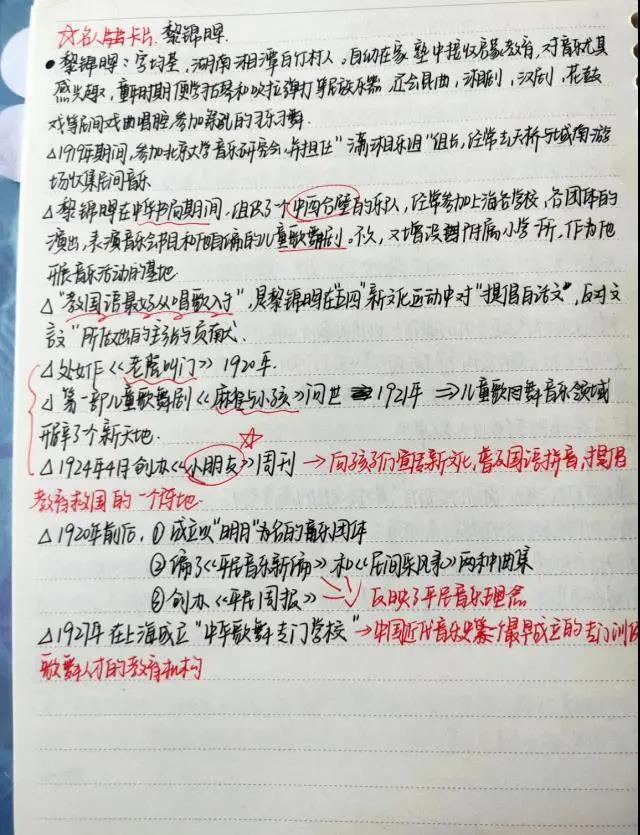 ☆名人生卡片. 黎锦晖.
• 黎锦晖:字均荃,湖南湘潭石竹村人,自幼在家塾中接收启蒙教育,对音乐尤其
感兴趣,童年时期便学习古琴和吹拉弹打等民族乐器.还会昆曲,湘剧,汉剧,花鼓
戏等民间戏曲唱腔,参加祭孔的习乐习舞.
△1919年期间,参加北京大学音乐研究会,并担任“潇湘乐组”组长,经常去天桥与城南游
场收集民间音乐
△黎锦晖在中华书局期间,组织了一个中西合璧的乐队,经常参加上海各学校,各团体的
演出,表演音乐节目和他自编的儿童歌舞剧.不久,又增设 附属小学一所,作为他
开展音乐活动的基地
△“教国语最好从唱歌入手”,是黎锦晖在“五四”新文化运动中对“提倡白话文”,反对文
言文”所做出的主张与贡献.
△处女作《老虎叫门》1920年.
△第一部儿童歌舞剧《麻雀与小孩》问世 1921年 ⇒儿童歌曲舞音乐领域
开辟了个新天地.
△1924年4月创办《小朋友》周刊 →向孩子们宣传新文化,普及国语拼音,提倡
教育救国的一个阵地.
△1920年前后,①成立以“明月”为名的音乐团体
②编了《平民音乐新编》和《民间采风录》两种曲集
③创办《平民周报》 反映了平民音乐理念
△1927年在上海成立“中华歌舞专门学校”→中国近代音乐史第一个最早成立的专门训练
歌舞人才的教育机构